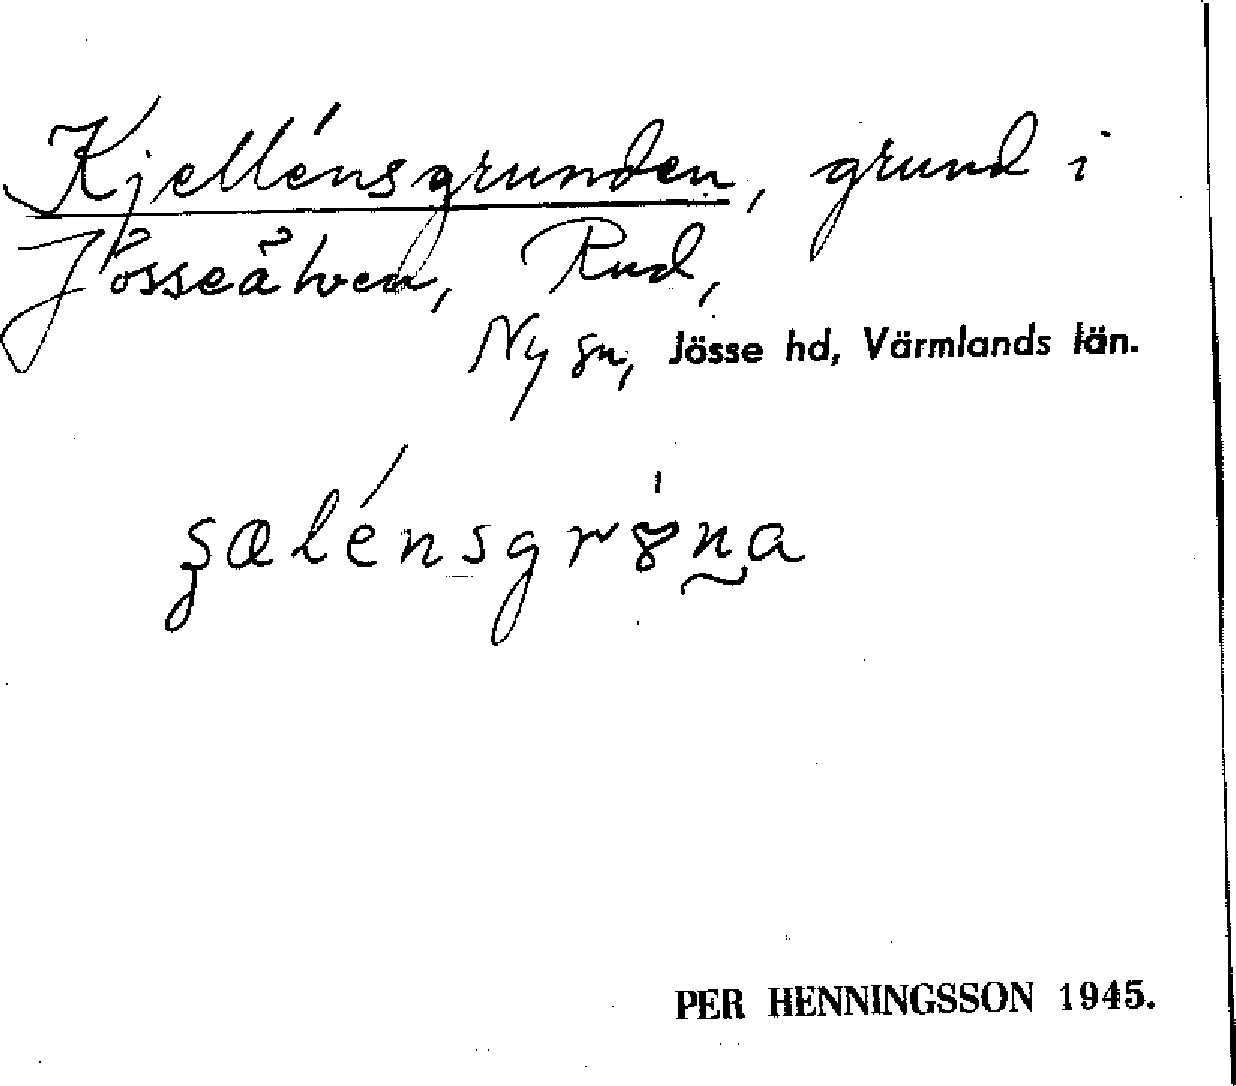 Kjellénsgrunden, grund i
Jösseälven, Rud,
Ny sn, Jösse hd, Värmlands län.
PER HENNINGSSON 1945.